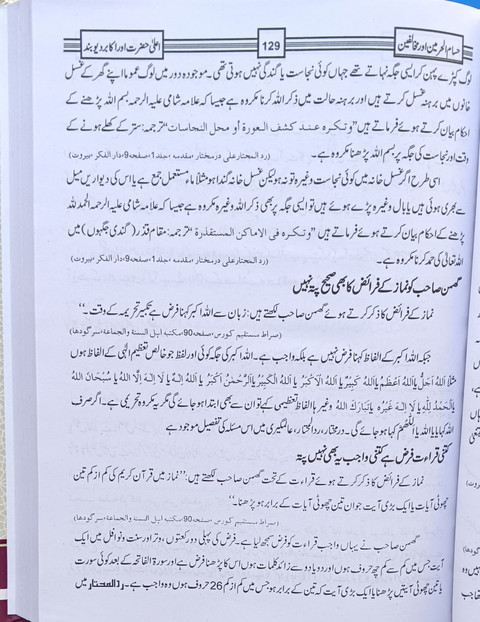 حسام الحرمین اور مخالفین 129 اعلیٰ حضرت اور اکابر دیوبند
لوگ کپڑے پہن کر ایسی جگہ نہاتے تھے جہاں کوئی نجاست یا گندگی نہیں ہوتی تھی۔ موجودہ دور میں لوگ عموماً اپنے گھر کے غسل
خانوں میں برہنہ غسل کرتے ہیں اور برہنہ حالت میں ذکر اللہ کرنا مکروہ ہے جیسا کہ علامہ شامی علیہ الرحمہ بسم اللہ پڑھنے کے
احکام بیان کرتے ہوئے فرماتے ہیں ”وتکرہ عند کشف العورۃ أو محل النجاسات“ ترجمہ: ستر کے کھلے ہونے کے
وقت اور نجاست کی جگہ پر بسم اللہ پڑھنا مکروہ ہے۔
(رد المحتار علی درمختار، مقدمہ، جلد1، صفحہ9، دار الفکر، بیروت)
اسی طرح اگر غسل خانہ میں کوئی نجاست وغیرہ تو نہ ہو لیکن غسل خانہ گندا ہو مثلاً ماءِ مستعمل جمع ہے یا اس کی دیواریں میل
سے بھری ہوئی ہیں یا بال وغیرہ پڑے ہوئے ہیں تو ایسی جگہ پر بھی ذکر اللہ وغیرہ مکروہ ہے جیسا کہ علامہ شامی علیہ الرحمہ الحمد للہ
پڑھنے کے احکام بیان کرتے ہوئے فرماتے ہیں ”وتکرہ فی الاماکن المستقذرۃ“ ترجمہ: مقام قذر (گندی جگہوں) میں
اللہ تعالیٰ کی حمد کرنا مکروہ ہے۔
(رد المحتار علی درمختار، مقدمہ، جلد1، صفحہ9، دار الفکر، بیروت)
گھمن صاحب کو نماز کے فرائض کا بھی صحیح پتہ نہیں
نماز کے فرائض کا ذکر کرتے ہوئے گھمن صاحب لکھتے ہیں: زبان سے اللہ اکبر کہنا فرض ہے تکبیر تحریمہ کے وقت۔“
(صراط مستقیم کورس، صفحہ90، مکتبہ اہل السنۃ والجماعۃ، سرگودھا)
جبکہ اللہ اکبر کے الفاظ کہنا فرض نہیں ہے بلکہ واجب ہے۔ اللہ اکبر کی جگہ کوئی اور لفظ جو خالص تعظیم الٰہی کے الفاظ ہوں
مثلاً اَللہُ اَجَلُّ یا اَللہُ اَعْظَمُ یا اَللہُ کَبِیْرٌ یا اَللہُ الْاَکْبَرُ یا اَللہُ الْکَبِیْرُ یا اَلرَّحْمٰنُ اَکْبَرُ یا اَللہُ اِلٰہٌ یا لَا اِلٰہَ اِلَّا اللہُ یا سُبْحَانَ اللہِ
یا اَلْحَمْدُ لِلّٰہِ یا لَا اِلٰہَ غَیْرُہٗ یا تَبَارَکَ اللہُ وغیرہا الفاظِ تعظیمی کہے تو ان سے بھی ابتدا ہو جائے گی مگر یہ مکروہ تحریمی ہے۔ اگر صرف
اللہ کہا یا یا اللہ یا اَللّٰھُمَّ کہا ہو جائے گی۔ درمختار، ردالمحتار، عالمگیری میں اس مسئلہ کی تفصیل موجود ہے
کتنی قراءت فرض ہے کتنی واجب یہ بھی نہیں پتہ
نماز کے فرائض کا ذکر کرتے ہوئے قراءت کے تحت گھمن صاحب لکھتے ہیں: ”نماز میں قرآن کریم کی کم از کم تین
چھوٹی آیات یا ایک بڑی آیت جو ان تین چھوٹی آیات کے برابر ہو پڑھنا۔“
(صراط مستقیم کورس، صفحہ90، مکتبہ اہل السنۃ والجماعۃ، سرگودھا)
گھمن صاحب نے یہاں واجب قراءت کو فرض سمجھ لیا ہے۔ فرض کی پہلی دو رکعتوں، وتر اور سنت و نوافل میں ایک
آیت جس میں کم سے کم چھ حروف ہوں اور دو یا دو سے زائد کلمات ہوں اس کا پڑھنا فرض ہے اور سورۃ الفاتحہ کے بعد کوئی سورت
یا تین چھوٹی آیتیں پڑھنا یا ایک بڑی آیت کہ تین کے برابر ہو جس میں کم از کم 26 حروف ہوں وہ واجب ہے۔ رد المحتار میں